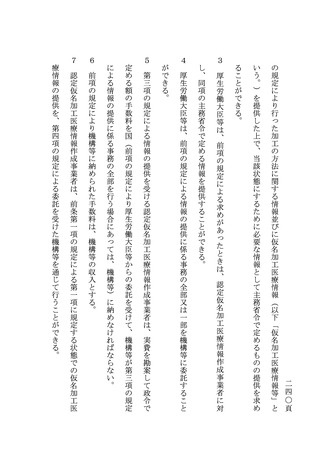 二四〇頁
の規定により行った加工の方法に関する情報並びに仮名加工医療情報（以下「仮名加工医療情報等」と
いう。）を提供した上で、当該状態にするために必要な情報として主務省令で定めるものの提供を求め
ることができる。
３　厚生労働大臣等は、前項の規定による求めがあったときは、認定仮名加工医療情報作成事業者に対
し、同項の主務省令で定める情報を提供することができる。
４　厚生労働大臣等は、前項の規定による情報の提供に係る事務の全部又は一部を機構等に委託すること
ができる。
５　第三項の規定による情報の提供を受ける認定仮名加工医療情報作成事業者は、実費を勘案して政令で
定める額の手数料を国（前項の規定により厚生労働大臣等からの委託を受けて、機構等が第三項の規定
による情報の提供に係る事務の全部を行う場合にあっては、機構等）に納めなければならない。
６　前項の規定により機構等に納められた手数料は、機構等の収入とする。
７　認定仮名加工医療情報作成事業者は、前条第一項の規定による第一項に規定する状態での仮名加工医
療情報の提供を、第四項の規定による委託を受けた機構等を通じて行うことができる。